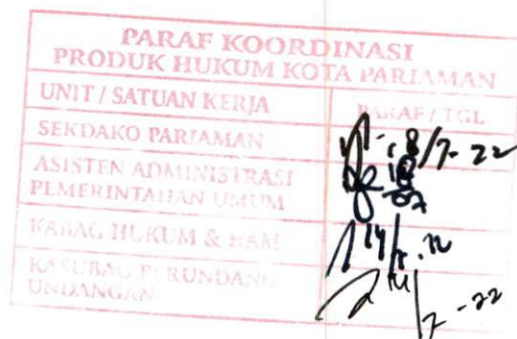 PARAF KOORDINASI
PRODUK HUKUM KOTA PARIAMAN
UNIT / SATUAN KERJA PARAF / TGL
SEKDAKO PARIAMAN 18/7-22
ASISTEN ADMINISTRASI
PEMERINTAHAN UMUM
KABAG HUKUM & HAM
KASUBAG PERUNDANG
UNDANGAN